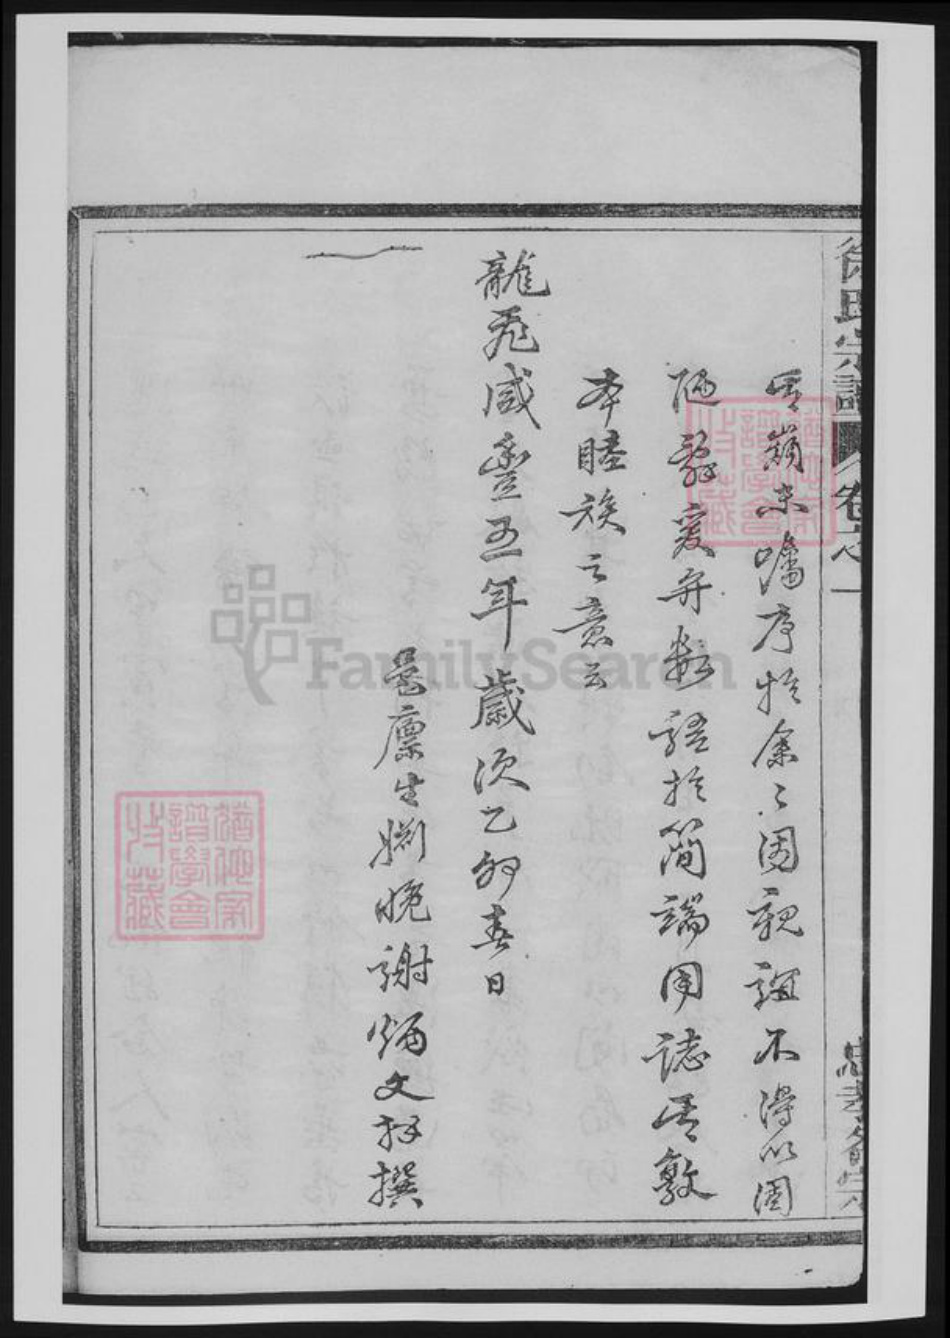 徐氏宗譜
卷之一
忠孝會宗
其巔末囑序於余〻固親誼不得以固
陋辭爰弁數語於簡端用誌其敦
本睦族之意云
龍飛咸豐五年歲次乙卯春日
邑廪生姻晚謝炳文拜撰
譜學會
收藏
譜學會
收藏
FamilySearch